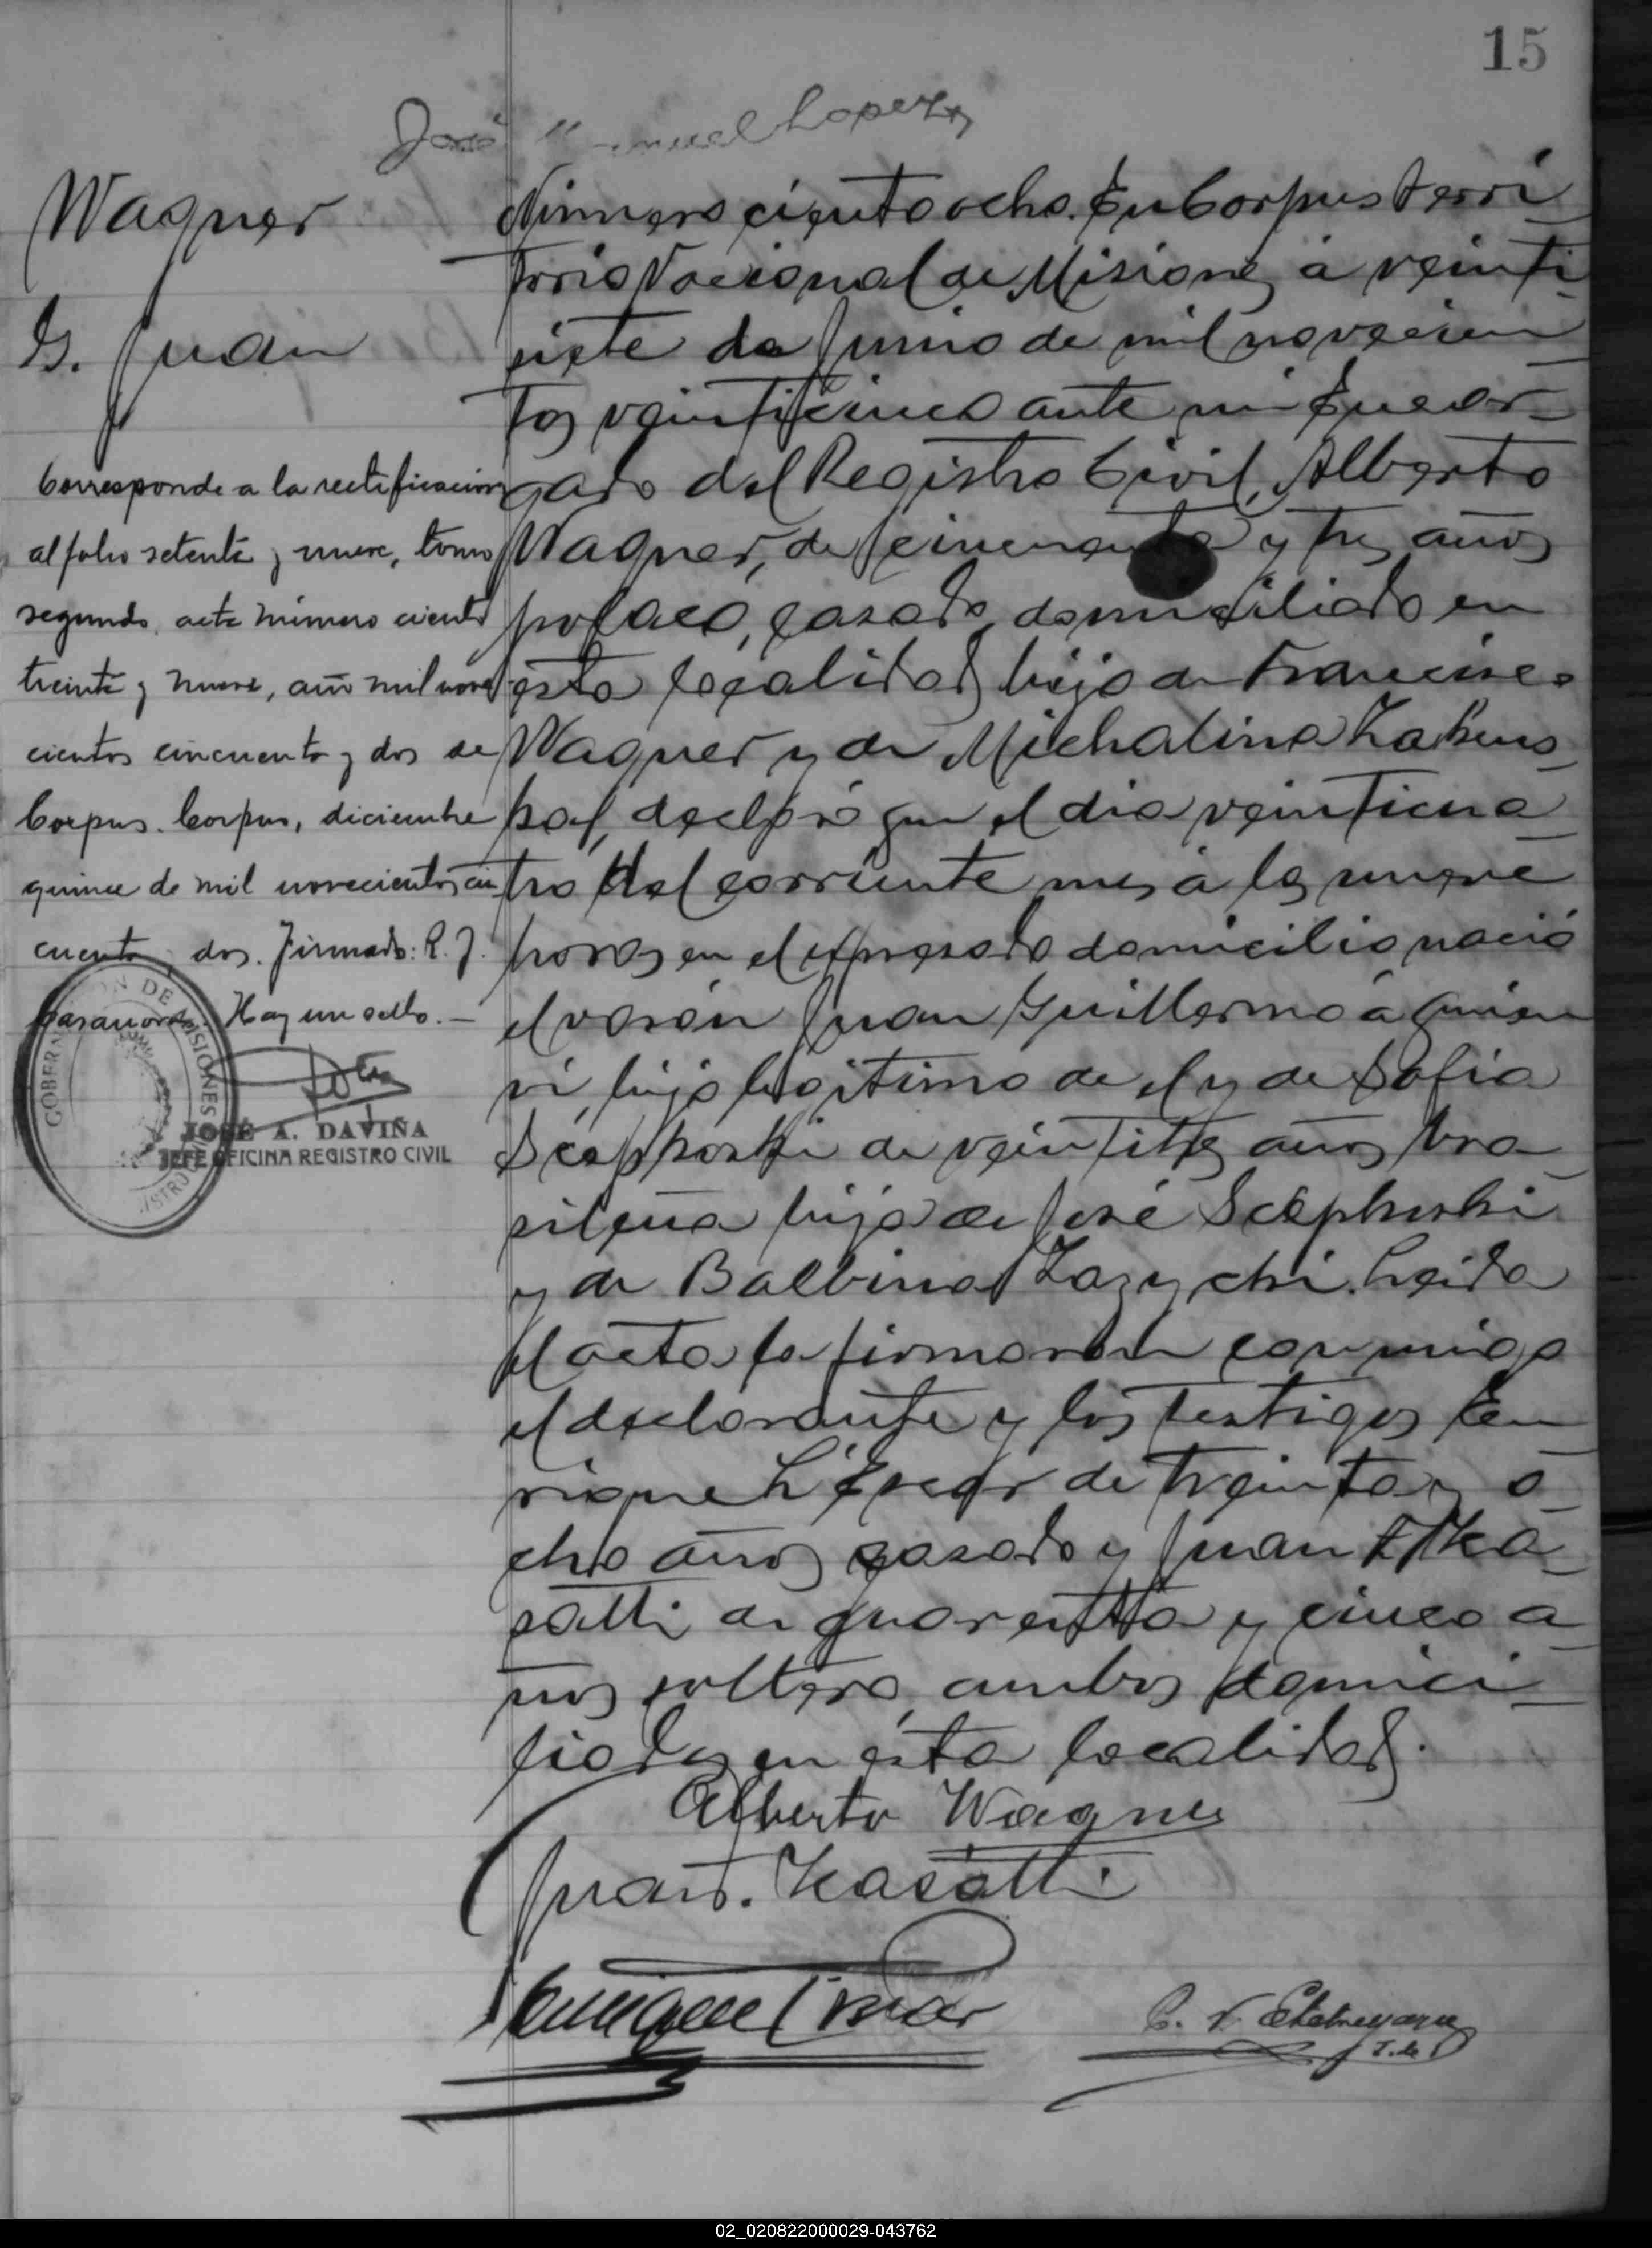 15
José Manuel Lopez
Wagner
G. Juan
Corresponde a la rectificacion
al folio setenta y nueve, tomo
segundo, acta número ciento
treinta y nueve, año mil nove
cientos cincuenta y dos de
Corpus. Corpus, diciembre
quince de mil novecientos cin
cuenta y dos. Firmado: R. J.
Casanova. Hay un sello.—
GOBERNACIÓN DE MISIONES
JOSÉ A. DAVIÑA
JEFE OFICINA REGISTRO CIVIL
Número ciento ocho. En Corpus terri
torio Nacional de Misiones, á veinti
siete de Junio de mil novecien
tos veinticinco ante mi Encar
gado del Registro Civil, Alberto
Wagner, de cincuenta y tres años
polaco, casado, domiciliado en
esta localidad, hijo de Francisco
Wagner y de Michalina
declaró que el dia veinticua
tro del corriente mes á las nueve
horas en el expresado domicilio nació
el varón Juan Guillermo á quien
vi, hijo legitimo de el y de Sofia
de veintitres años bra
sileña hija de José
y de Balbina Leida
el acta la firmaron conmigo
el declarante y los testigos En
rique de treinta y o
cho años casado y Juan Ka
satti de cuarenta y cinco a
ños soltero, ambos domici
liados en ésta localidad.
Alberto Wagner
Juan Kasatti
Enrique
02_020822000029-043762